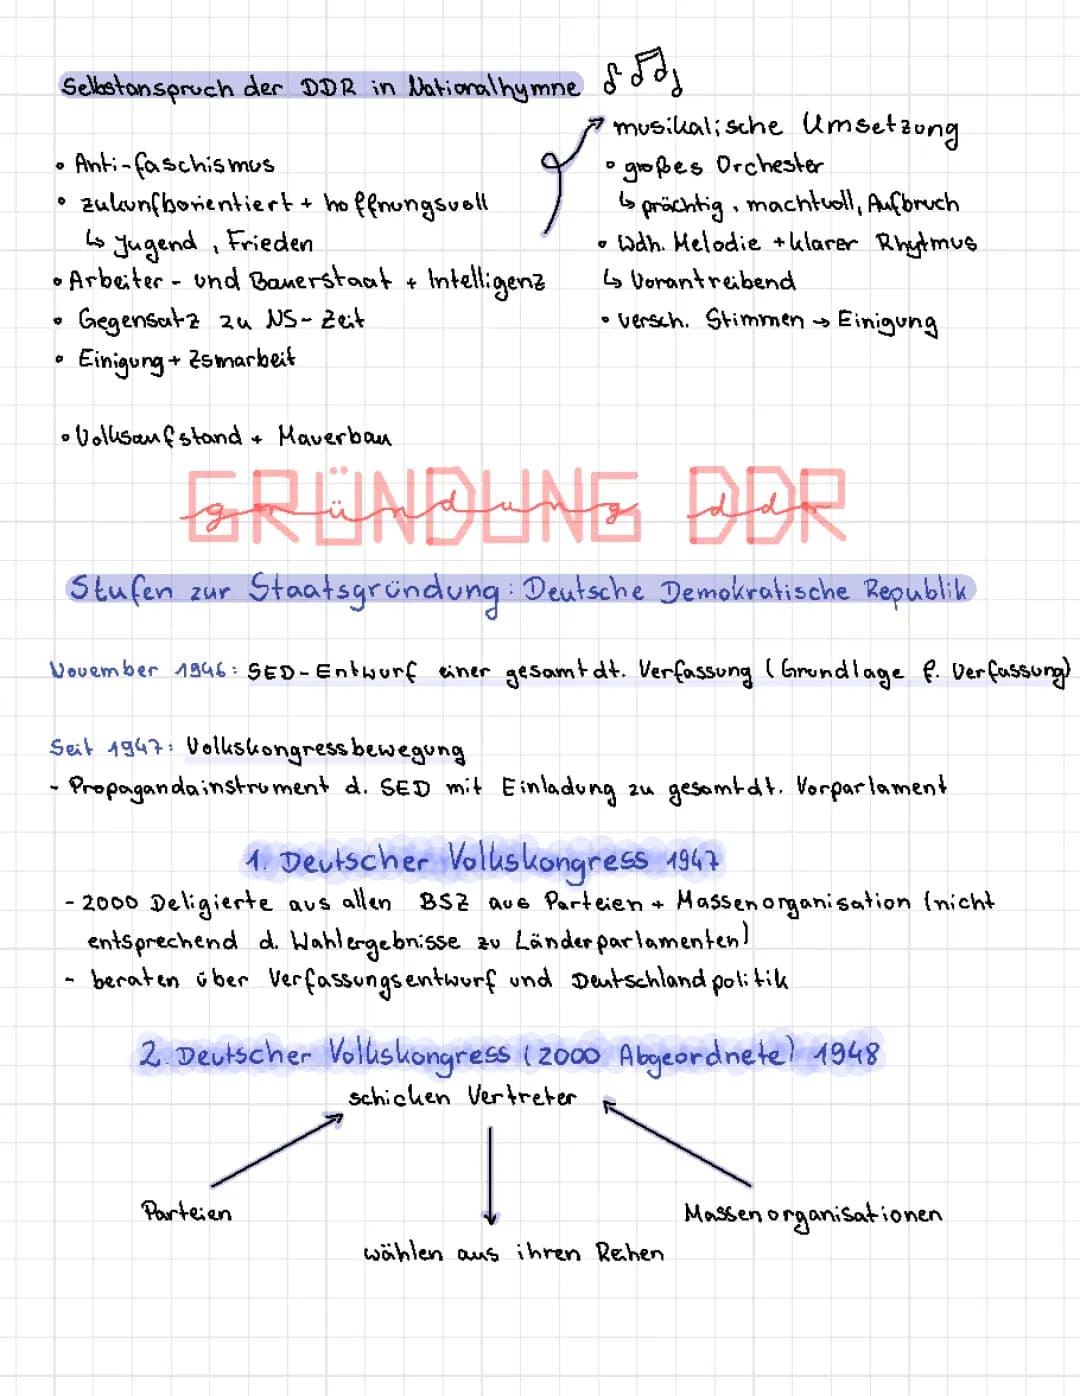 Selbstanspruch der DDR in Nationalhymne
• Anti-faschismus
• zukunftsorientiert + hoffnungsvoll
↳ Jugend, Frieden
• Arbeiter- und Bauerstaat + Intelligenz
• Gegensatz zu NS-Zeit
• Einigung + Zsmarbeit
• Volksaufstand + Mauerbau
musikalische Umsetzung
• großes Orchester
↳ prächtig, machtvoll, Aufbruch
• Wdh. Melodie + klarer Rhytmus
↳ Vorantreibend
• versch. Stimmen → Einigung
GRÜNDUNG DDR
gründung ddr
Stufen zur Staatsgründung: Deutsche Demokratische Republik
November 1946: SED-Entwurf einer gesamtdt. Verfassung (Grundlage f. Verfassung)
Seit 1947: Volkskongressbewegung
- Propagandainstrument d. SED mit Einladung zu gesamtdt. Vorparlament
1. Deutscher Volkskongress 1947
- 2000 Deligierte aus allen BSZ aus Parteien + Massenorganisation (nicht
entsprechend d. Wahlergebnisse zu Länderparlamenten)
- beraten über Verfassungsentwurf und Deutschlandpolitik
2. Deutscher Volkskongress (2000 Abgeordnete) 1948
schicken Vertreter
Parteien
Massenorganisationen
wählen aus ihren Reihen